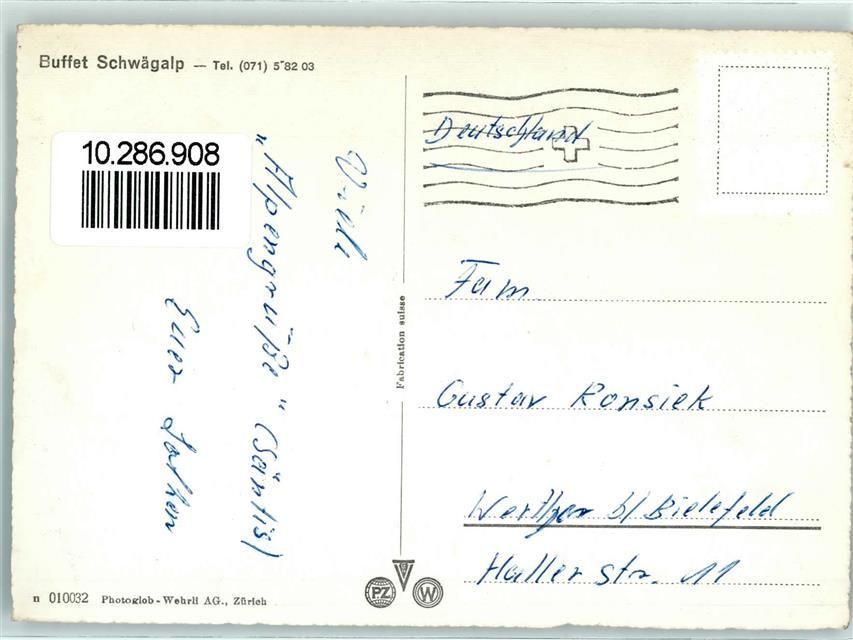 Buffet Schwägalp — Tel. (071) 5 82 03
10.286.908
Viele
„Alpengrüße“ (Säntis)
Euer
Fabrication suisse
Deutschland
Fam.
Gustav Ronsiek
Werther b/ Bielefeld
Haller str. 11
n 010032 Photoglob-Wehrli AG., Zürich
PZ
W